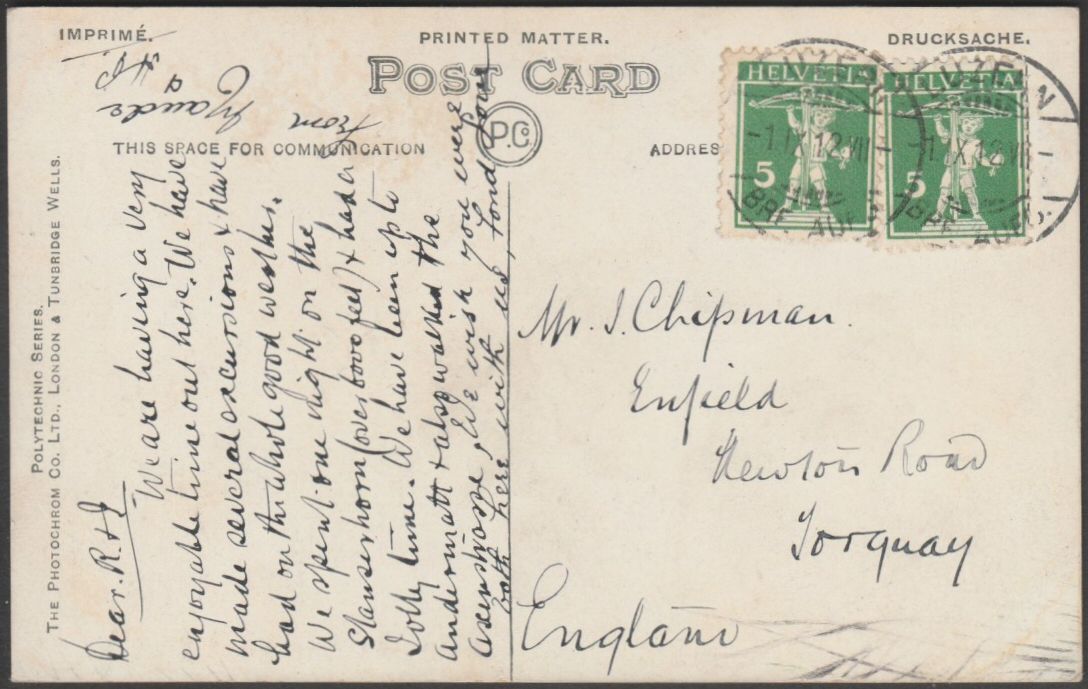 IMPRIMÉ.
PRINTED MATTER.
DRUCKSACHE.
POST CARD
THIS SPACE FOR COMMUNICATION
P.Co.
ADDRES
POLYTECHNIC SERIES.
THE PHOTOCHROM CO. LTD., LONDON & TUNBRIDGE WELLS.
HELVETIA
5
HELVETIA
5
LUZERN
-1 IX 12 VII
BRF. AUFG.
Dear. R & J
We are having a very
enjoyable time out here. We have
made several excursions & have
had on the whole good weather.
We spent one night on the
Stanserhorn (over 6000 feet) & had a
Jolly time. We have been up to
Andermatt & also walked the
Axenstrasse, We wish you were
both here with us, fond love
from
Maude
&
Mr. J. Chipman.
Enfield
Newton Road
Torquay
England